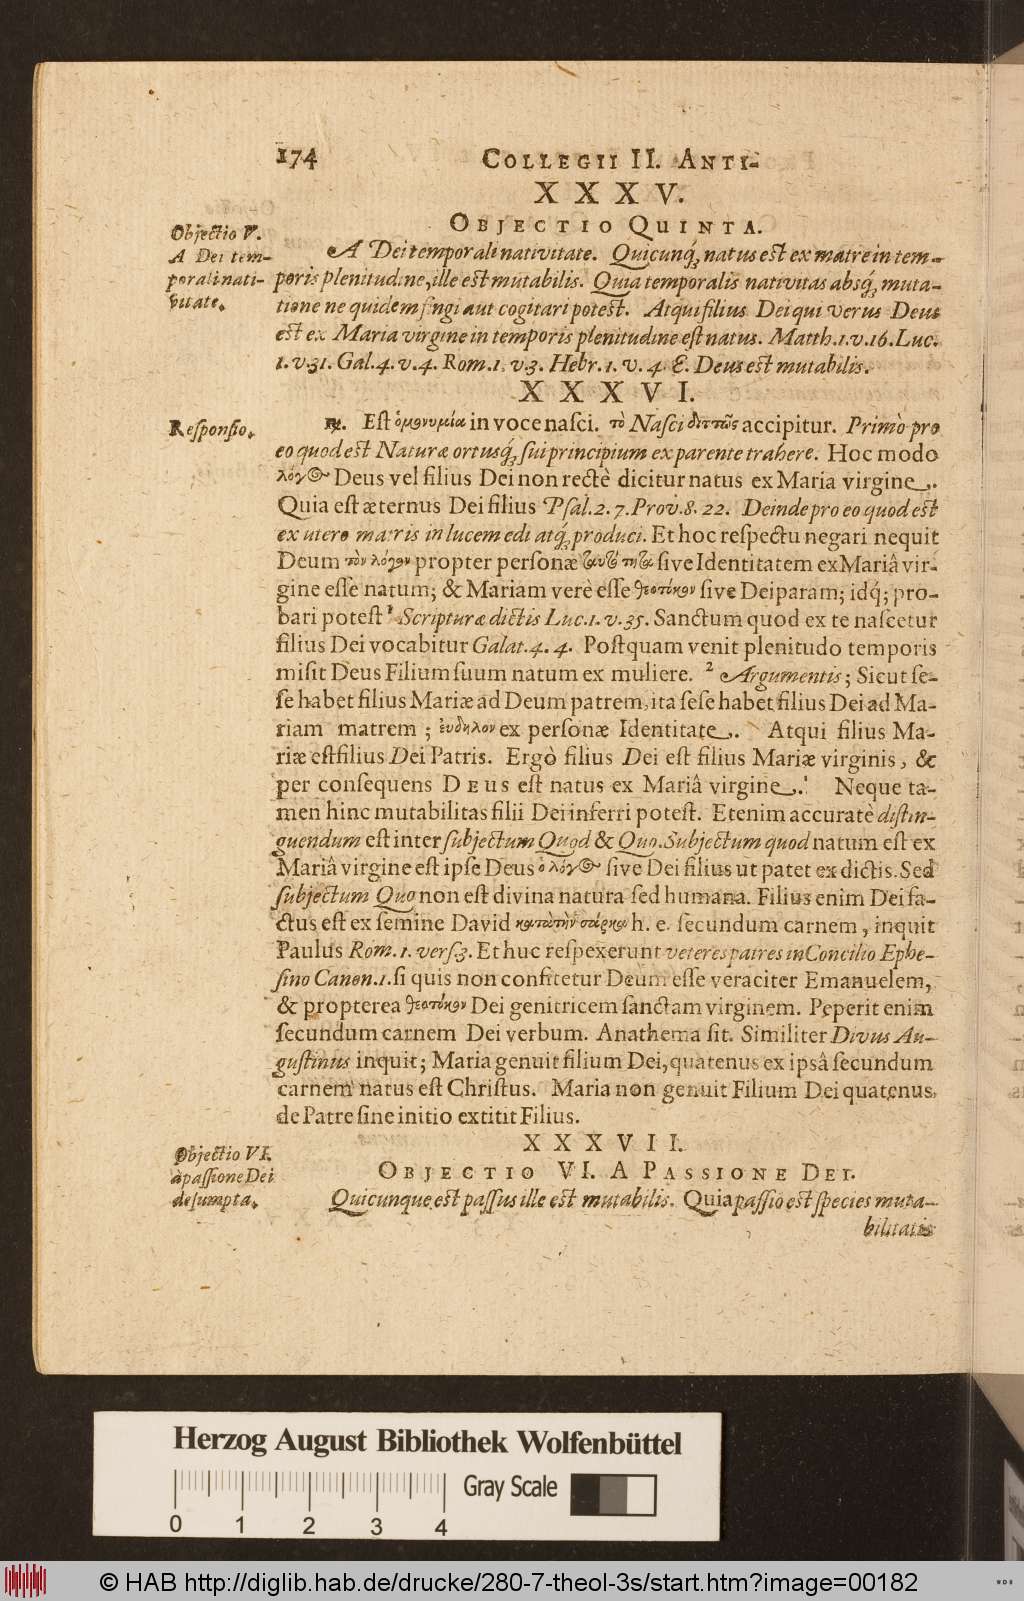 174 COLLEGII II. ANTI-
XXXV.
OBJECTIO QUINTA.
Objectio V.
A Dei tem-
porali nati-
vitate.
A Dei temporali nativitate. Quicunq; natus est ex matre in tem-
poris plenitudine, ille est mutabilis. Quia temporalis nativitas absq; muta-
tione ne quidem fingi aut cogitari potest. Atqui filius Dei qui verus Deus
est ex Maria virgine in temporis plenitudine est natus. Matth.1.v.16. Luc.
1.v.31. Gal.4.v.4. Rom.1.v.3. Hebr.1.v.4. E. Deus est mutabilis.
XXXVI.
Responsio.
℞. Est ὁμωνυμία in voce nasci. τὸ Nasci διττῶς accipitur. Primò pro
eo quod est Naturæ ortusq; sui principium ex parente trahere. Hoc modo
λόγος Deus vel filius Dei non rectè dicitur natus ex Maria virgine.
Quia est æternus Dei filius Psal.2.7. Prov.8.22. Deinde pro eo quod est
ex utero matris in lucem edi atq; produci. Et hoc respectu negari nequit
Deum τὸν λόγον propter personæ sive Identitatem ex Mariâ vir-
gine esse natum; & Mariam verè esse θεοτόκον sive Deiparam; idq; pro-
bari potest ¹ Scripturæ dictis Luc.1.v.35. Sanctum quod ex te nascetur
filius Dei vocabitur Galat.4.4. Postquam venit plenitudo temporis
misit Deus Filium suum natum ex muliere. ² Argumentis; Sicut se-
se habet filius Mariæ ad Deum patrem, ita sese habet filius Dei ad Ma-
riam matrem; ἐυδηλον ex personæ Identitate. Atqui filius Ma-
riæ est filius Dei Patris. Ergò filius Dei est filius Mariæ virginis, &
per consequens DEUS est natus ex Mariâ virgine. Neque ta-
men hinc mutabilitas filii Dei inferri potest. Etenim accuratè distin-
guendum est inter subjectum Quod & Quo. Subjectum quod natum est ex
Mariâ virgine est ipse Deus ὁ λόγος sive Dei filius ut patet ex dictis. Sed
subjectum Quo non est divina natura sed humana. Filius enim Dei fa-
ctus est ex semine David κατὰ τὴν σάρκα h. e. secundum carnem, inquit
Paulus Rom.1.vers.3. Et huc respexerunt veteres patres in Concilio Ephe-
sino Canon.1. si quis non confitetur Deum esse veraciter Emanuelem,
& propterea θεοτόκον Dei genitricem sanctam virginem. Peperit enim
secundum carnem Dei verbum. Anathema sit. Similiter Divus Au-
gustinus inquit; Maria genuit filium Dei, quatenus ex ipsâ secundum
carnem natus est Christus. Maria non genuit Filium Dei quatenus
de Patre sine initio extitit Filius.
XXXVII.
Objectio VI.
à passione Dei
desumpta.
OBJECTIO VI. A PASSIONE DEI.
Quicunque est passus ille est mutabilis. Quia passio est species muta-
bilitatis
Herzog August Bibliothek Wolfenbüttel
Gray Scale
0 1 2 3 4
© HAB http://diglib.hab.de/drucke/280-7-theol-3s/start.htm?image=00182